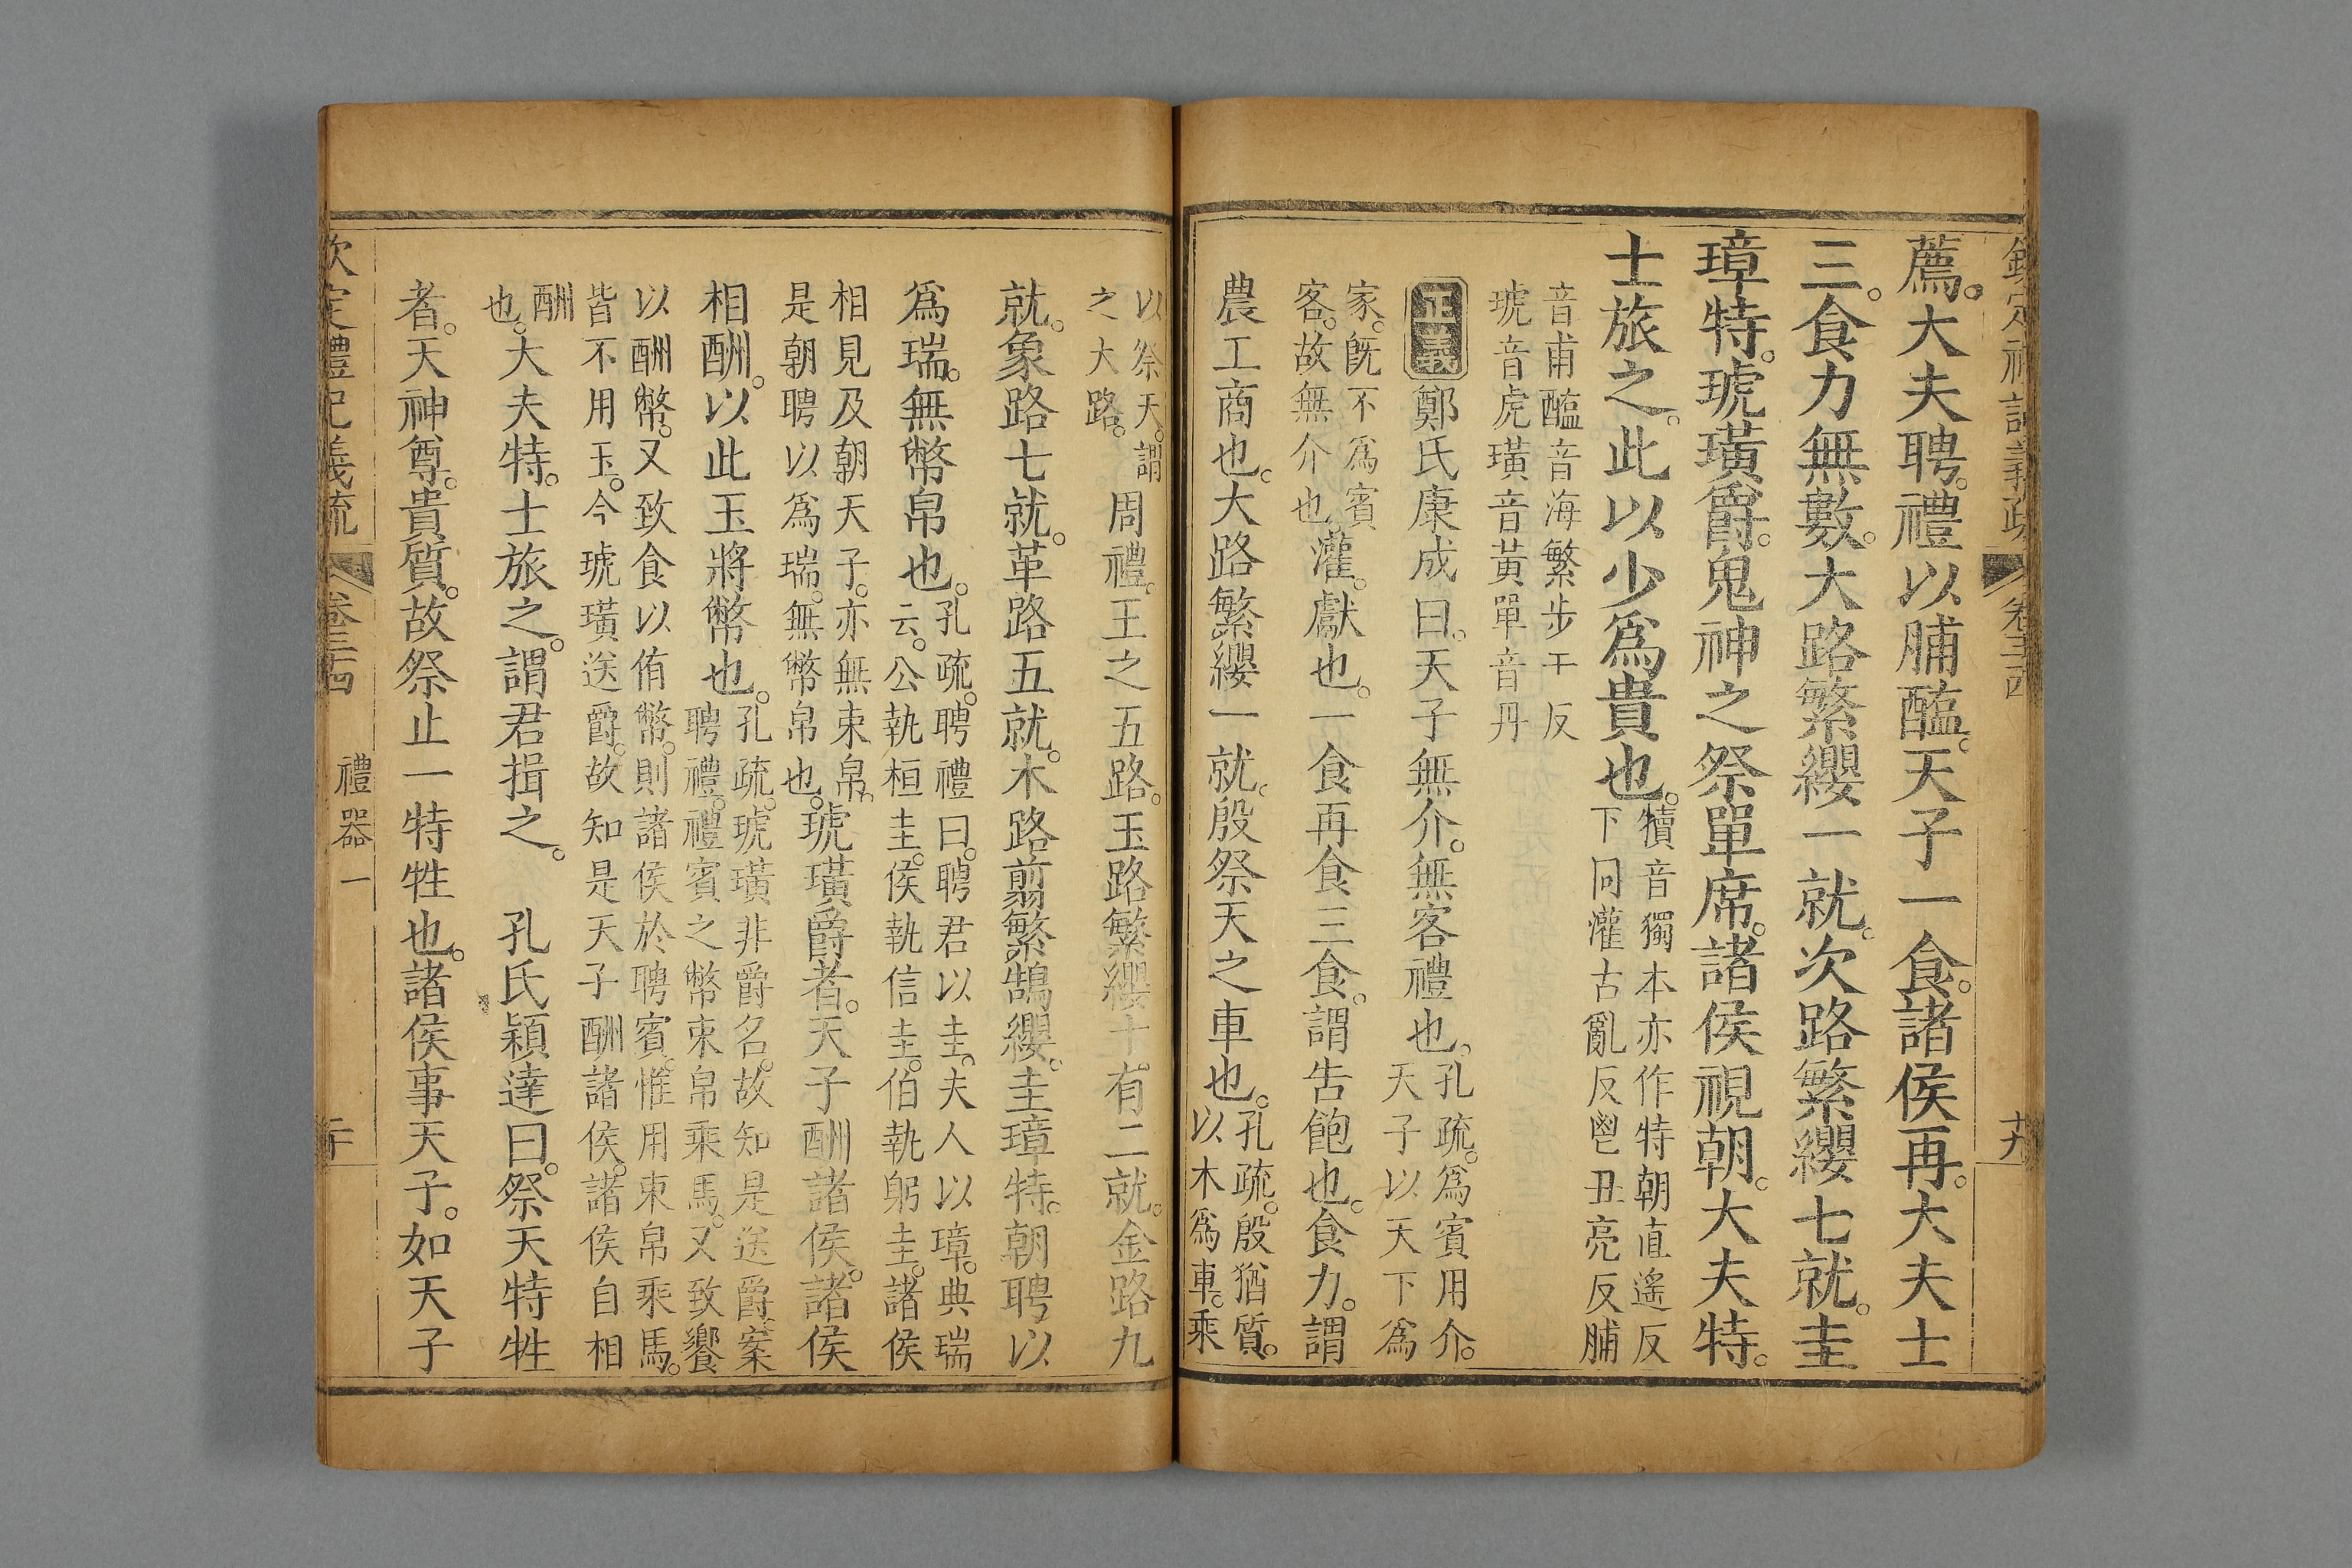 欽定禮記義疏 卷三十四 十九
薦。大夫聘。禮以脯醢。天子一食。諸侯再。大夫士
三。食力無數。大路繁纓一就。次路繁纓七就。圭
璋特。琥璜爵。鬼神之祭單席。諸侯視朝。大夫特。
士旅之。此以少爲貴也。
犢音獨本亦作特朝直遙反
下同灌古亂反鬯丑亮反脯
音甫醢音海繁步干反
琥音虎璜音黃單音丹
正義 鄭氏康成曰。天子無介。無客禮也。
孔疏。爲賓用介。
天子以天下爲
家。旣不爲賓
客。故無介也。
灌。獻也。一食再食三食。謂告飽也。食力。謂
農工商也。大路繁纓一就。殷祭天之車也。
孔疏。殷猶質。
以木爲車。乘
以祭天。謂
之大路。
周禮。王之五路。玉路繁纓十有二就。金路九
就。象路七就。革路五就。木路翦繁鵠纓。圭璋特。朝聘以
爲瑞。無幣帛也。
孔疏。聘禮曰。聘君以圭。夫人以璋。典瑞
云。公執桓圭。侯執信圭。伯執躬圭。諸侯
相見及朝天子。亦無束帛。
是朝聘以爲瑞。無幣帛也。
琥璜爵者。天子酬諸侯。諸侯
相酬。以此玉將幣也。
孔疏。琥璜非爵名。故知是送爵。案
聘禮。禮賓之幣束帛乘馬。又致饗
以酬幣。又致食以侑幣。則諸侯於聘賓。惟用束帛乘馬。
皆不用玉。今琥璜送爵。故知是天子酬諸侯。諸侯自相
酬
也。
大夫特。士旅之。謂君揖之。 孔氏穎達曰。祭天特牲
者。天神尊。貴質。故祭止一特牲也。諸侯事天子。如天子
欽定禮記義疏 卷三十四 禮器一 二十